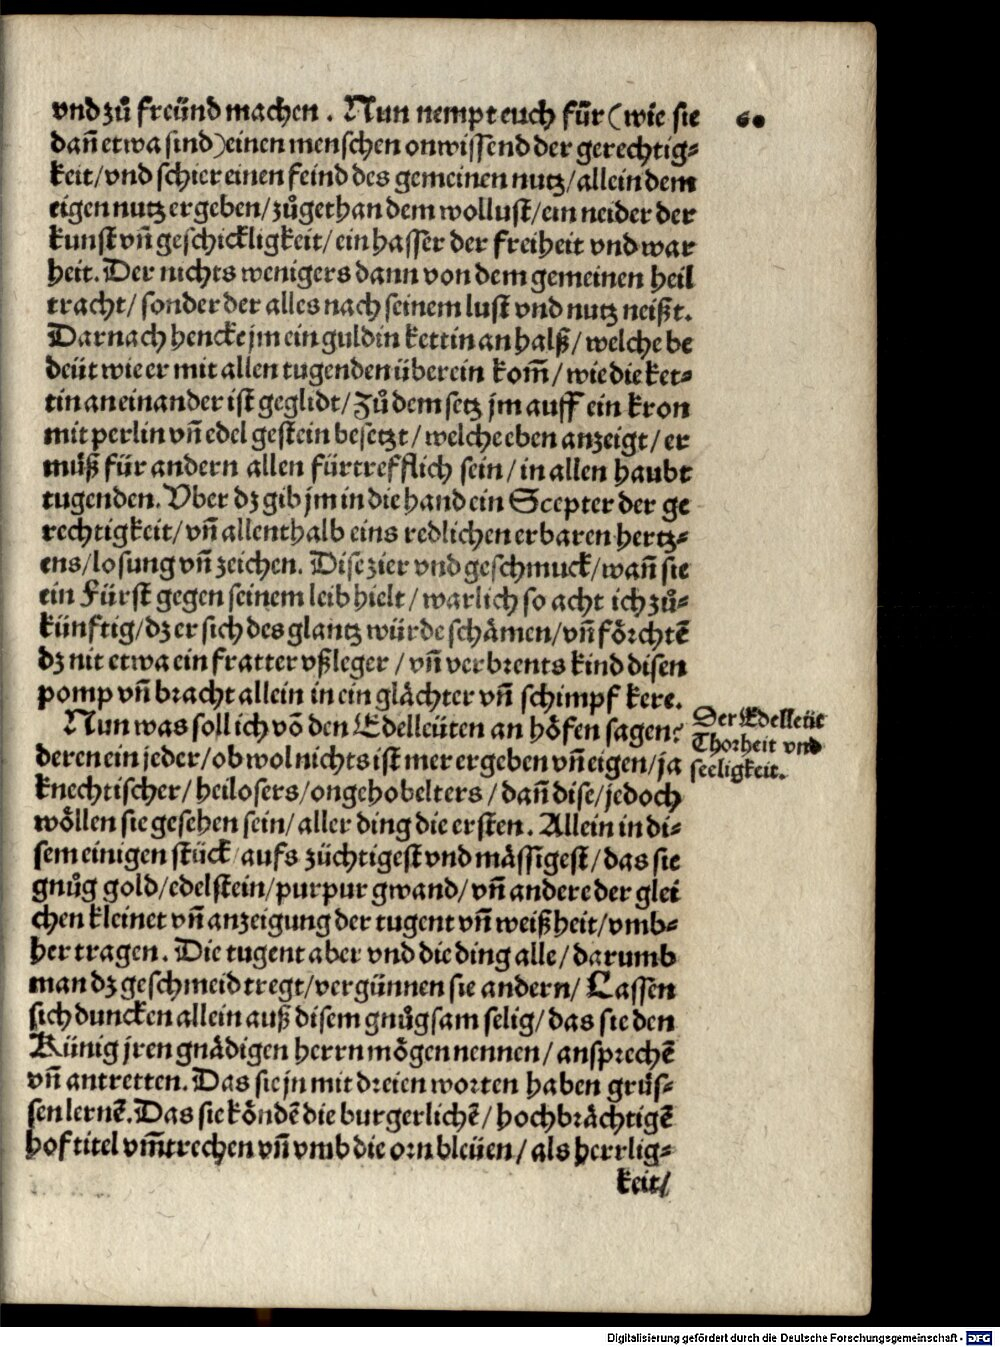 60
vnd zů freünd machen. Nun nempt euch für (wie sie
dañ etwa sind) einen menschen onwissend der gerechtig⸗
keit/ vnd schier einen feind des gemeinen nutz/ allein dem
eigen nutz ergeben/ zůgethan dem wollust/ ein neider der
kunst vñ geschickligkeit/ ein hasser der freiheit vnd war
heit. Der nichts wenigers dann von dem gemeinen heil
tracht/ sonder der alles nach seinem lust vnd nutz neißt.
Darnach hencke jm ein guldin kettin an halß/ welche be
deüt wie er mit allen tugenden überein kom̃/ wie die ket⸗
tin an einander ist geglidt/ Zů dem setz jm auff ein kron
mit perlin vñ edel gestein besetzt/ welche eben anzeigt/ er
můß für andern allen fürtrefflich sein/ in allen haubt
tugenden. Vber dz gib jm in die hand ein Scepter der ge
rechtigkeit/ vñ allenthalb eins redlichen erbaren hertz⸗
ens/ losung vñ zeichen. Dise zier vnd geschmuck/ wañ sie
ein Fürst gegen seinem leib hielt/ warlich so acht ich zů⸗
künftig/ dz er sich des glantz würde schämen/ vñ förchtẽ
dz nit etwa ein fratter vßleger/ vñ verbrents kind disen
pomp vñ bracht allein in ein glächter vñ schimpf kere.
Nun was soll ich võ den Edelleüten an höfen sagen?
deren ein jeder/ ob wol nichts ist mer ergeben vñ eigen/ ja
knechtischer/ heilosers/ ongehobelters/ dañ dise/ jedoch
wöllen sie gesehen sein/ aller ding die ersten. Allein in di⸗
sem einigen stück/ aufs züchtigest vnd mässigest/ das sie
gnůg gold/ edelstein/ purpur gwand/ vñ andere der glei
chen kleinet vñ anzeigung der tugent vñ weißheit/ vmb⸗
her tragen. Die tugent aber vnd die ding alle/ darumb
man dz geschmeid tregt/ vergünnen sie andern/ Lassen
sich duncken allein auß disem gnůgsam selig/ das sie den
Künig jren gnädigen herrn mögen nennen/ ansprechẽ
vñ antretten. Das sie jn mit dreien worten haben grüs⸗
sen lernẽ. Das sie köndẽ die burgerlichẽ/ hochbrächtigẽ
hoftitel vm̃trechen vñ vmb die orn bleüen/ als herrlig⸗
keit/
Der Edelleüt
Thorheit vnd
seeligkeit.
Digitalisierung gefördert durch die Deutsche Forschungsgemeinschaft - DFG